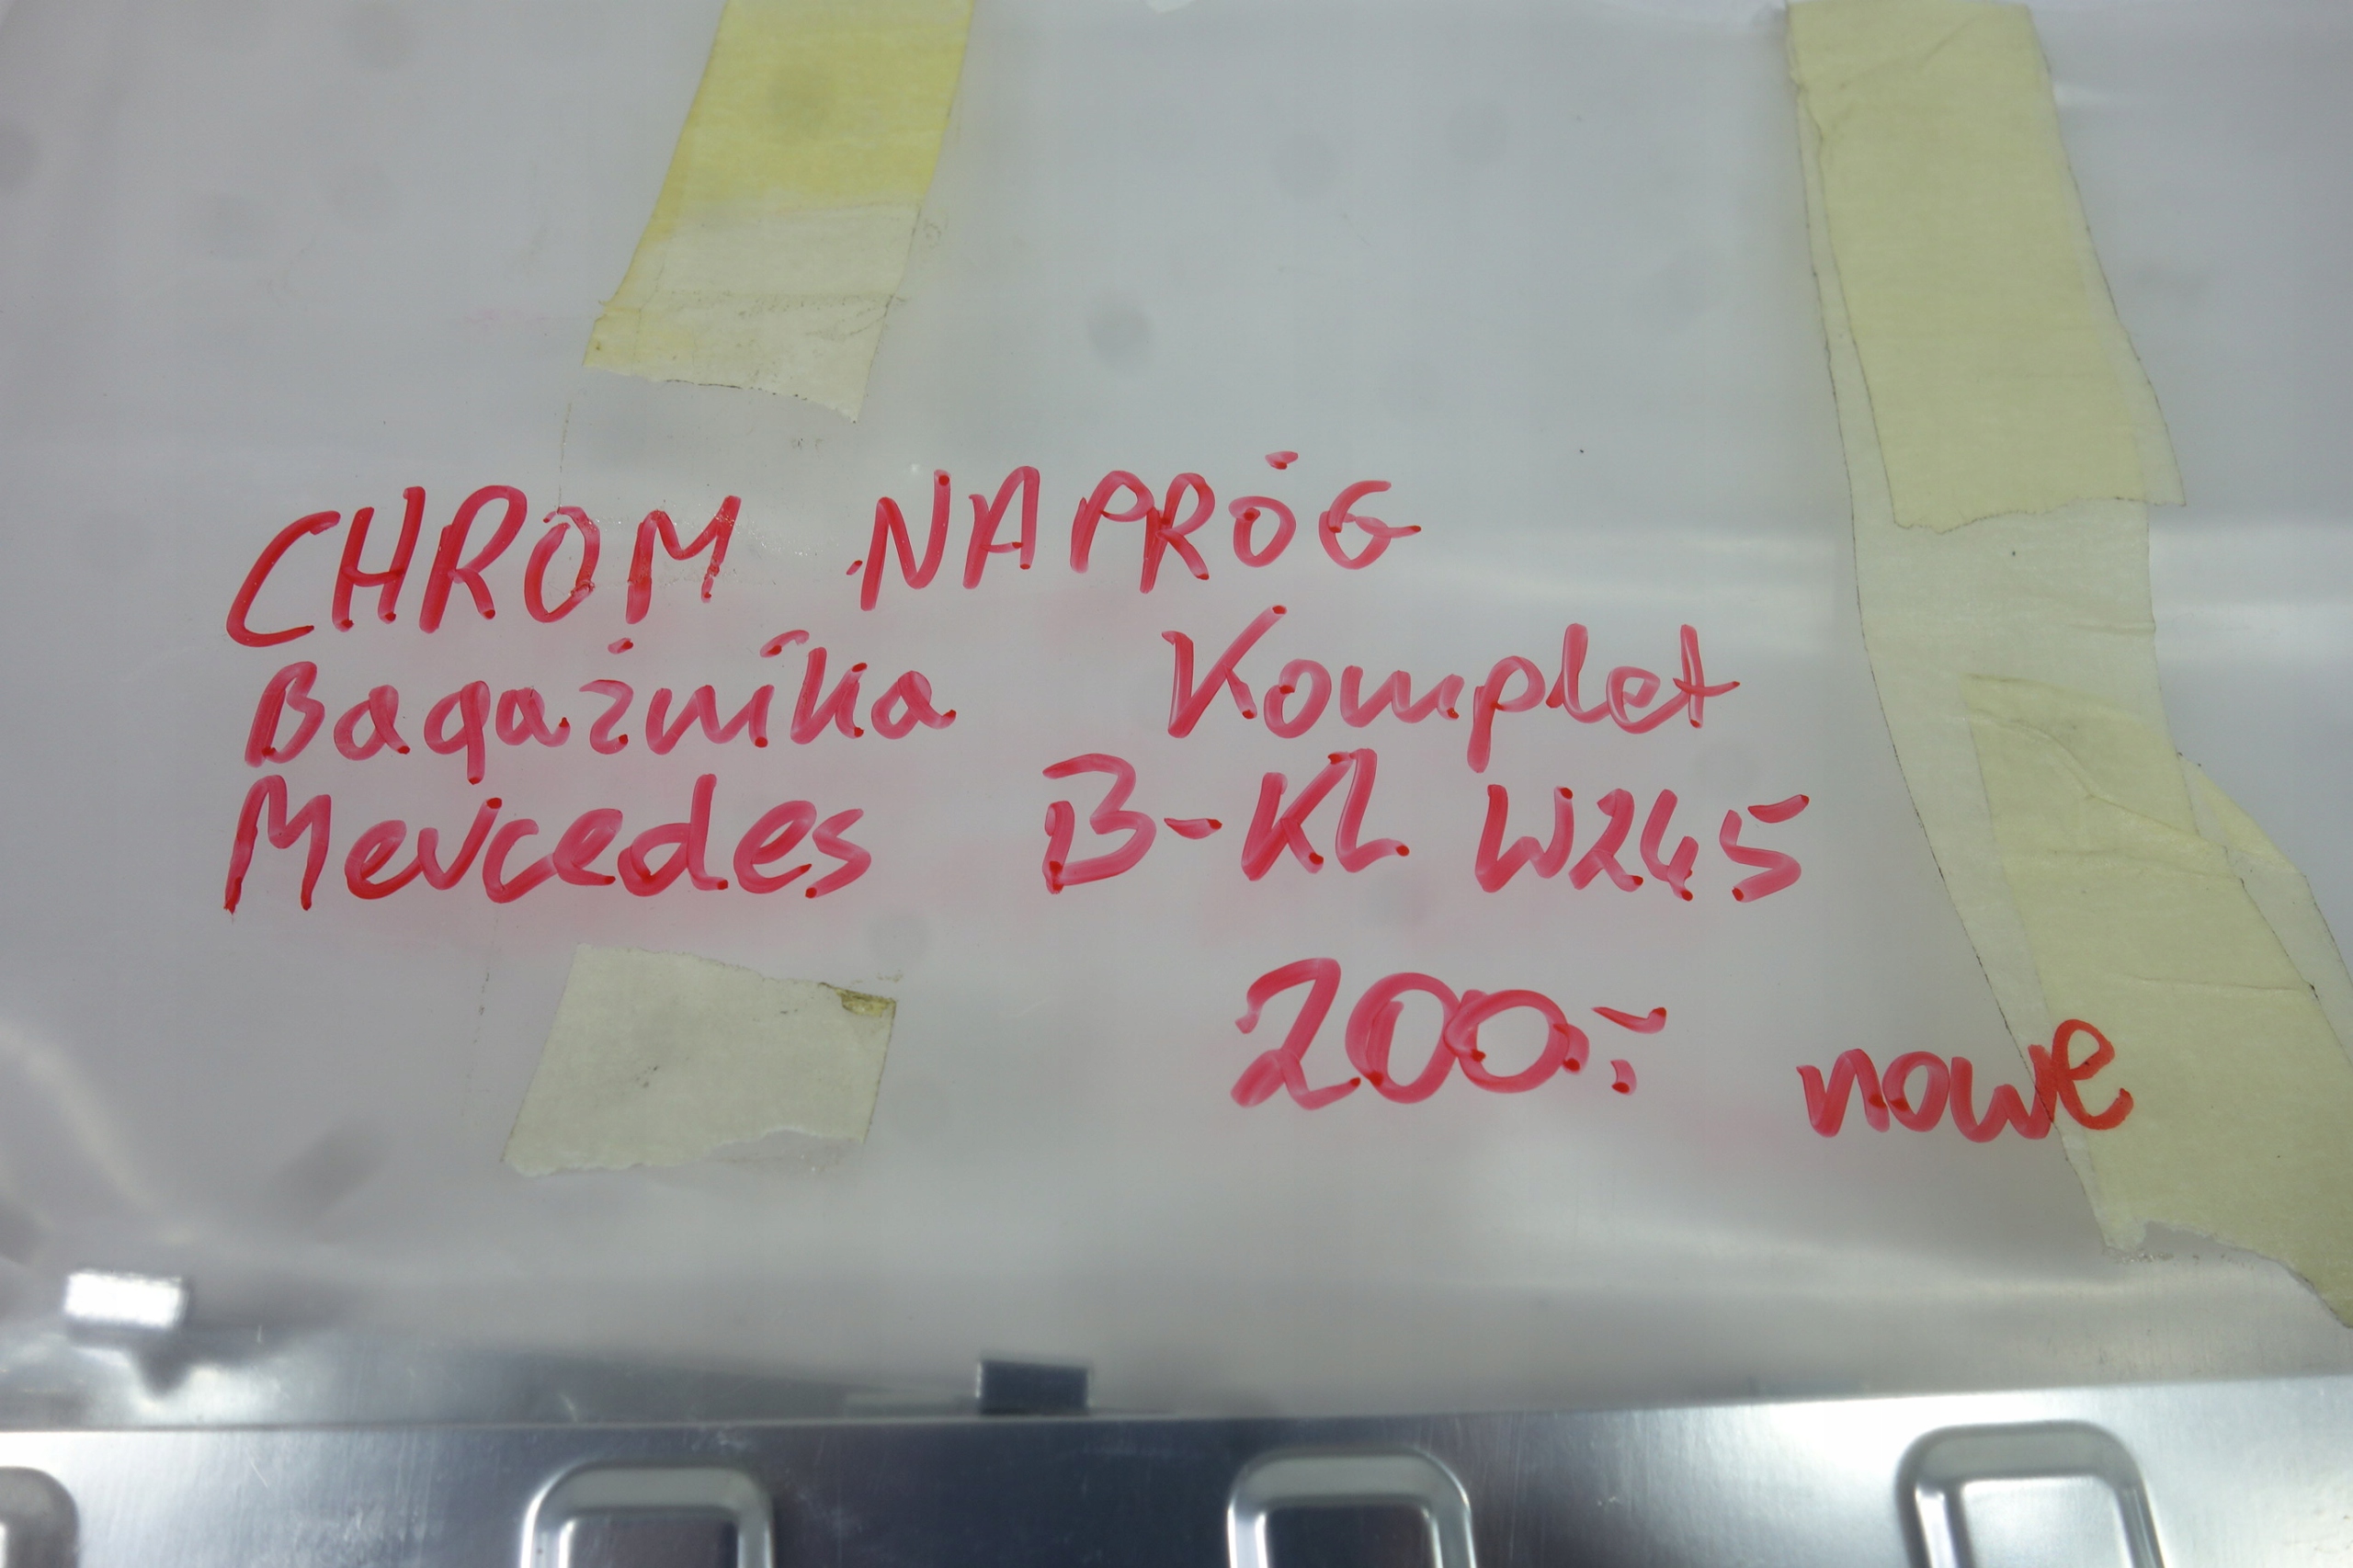 CHROM NAPRÓG
Bagażnika Komplet
Mercedes B-KL W245
200.-
nowe